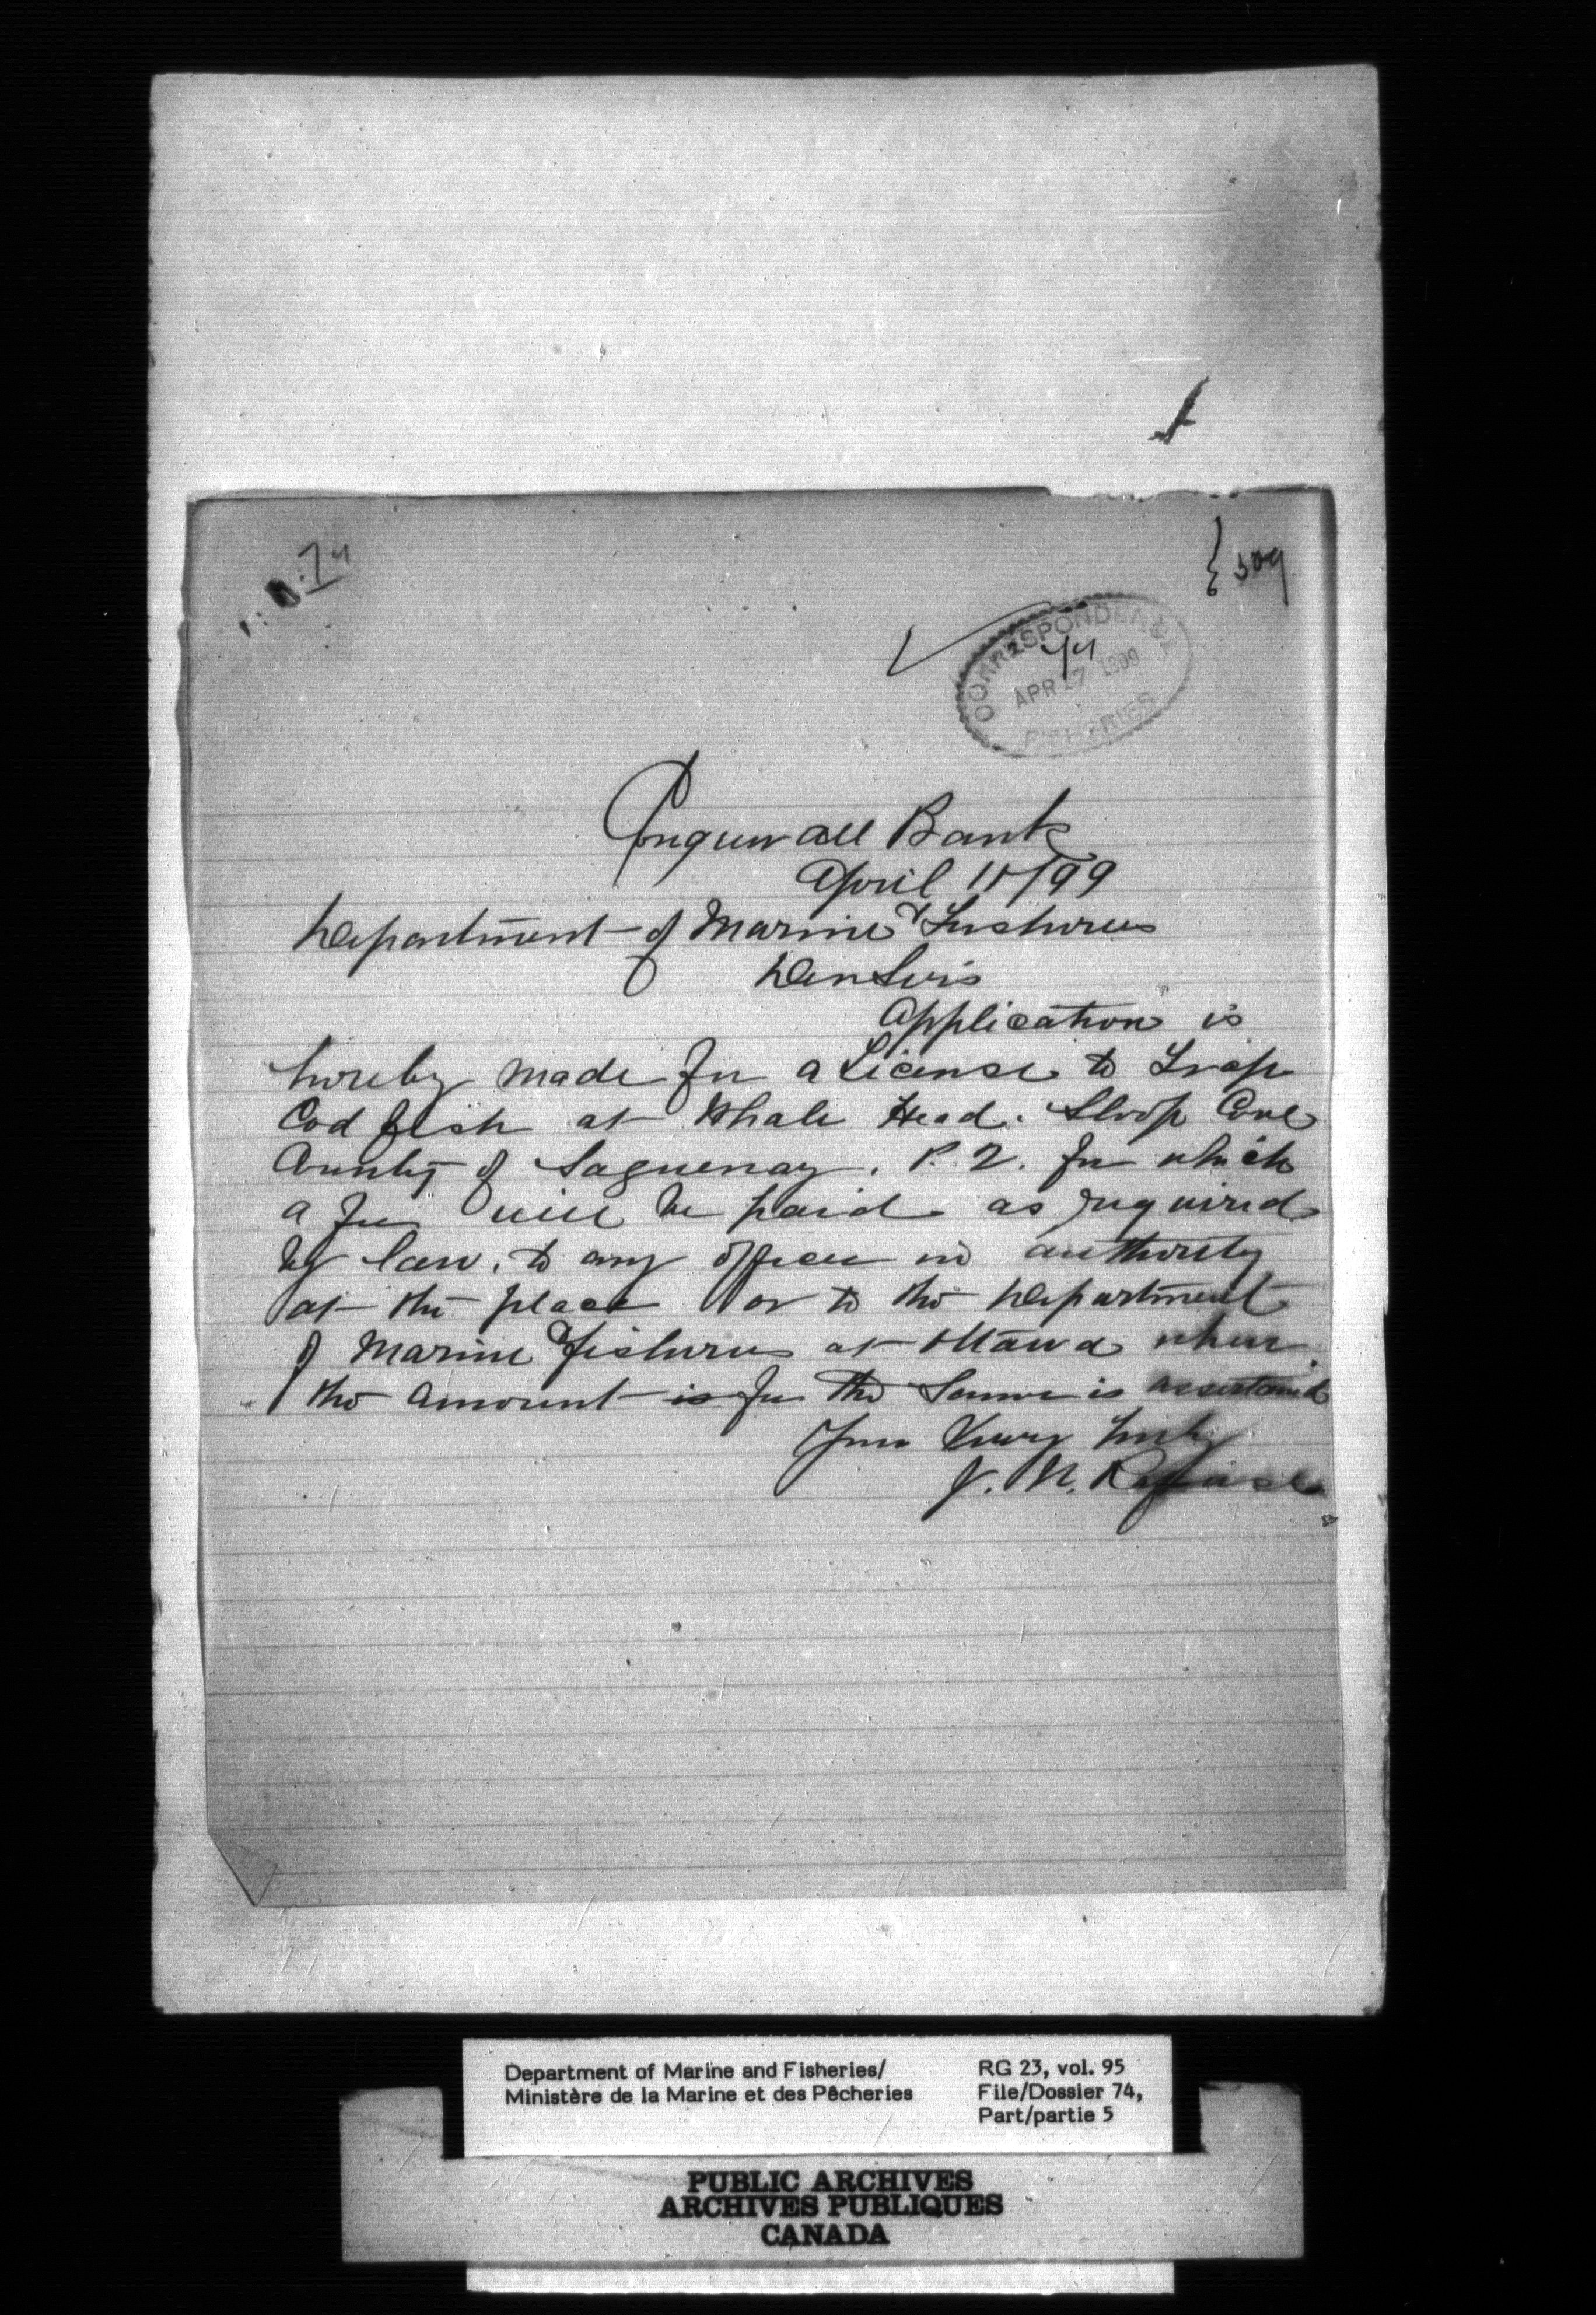 74
309
CORRESPONDENCE
74
APR 17 1899
FISHERIES
Conquerall Bank
April 11/99
Department of Marine & Fisheries
Dear Sirs
Application is
hereby made for a License to Trap
Cod fish at Whale Head. Sloop Cove
County of Saguenay. P. Q. for which
a fee will be paid as required
by law, to any officer in authority
at the place or to the Department
of Marine & Fisheries at Ottawa when
the amount is for the same is ascertained
Your Very truly
J. N.
Department of Marine and Fisheries/
Ministère de la Marine et des Pêcheries
RG 23, vol. 95
File/Dossier 74,
Part/partie 5
PUBLIC ARCHIVES
ARCHIVES PUBLIQUES
CANADA